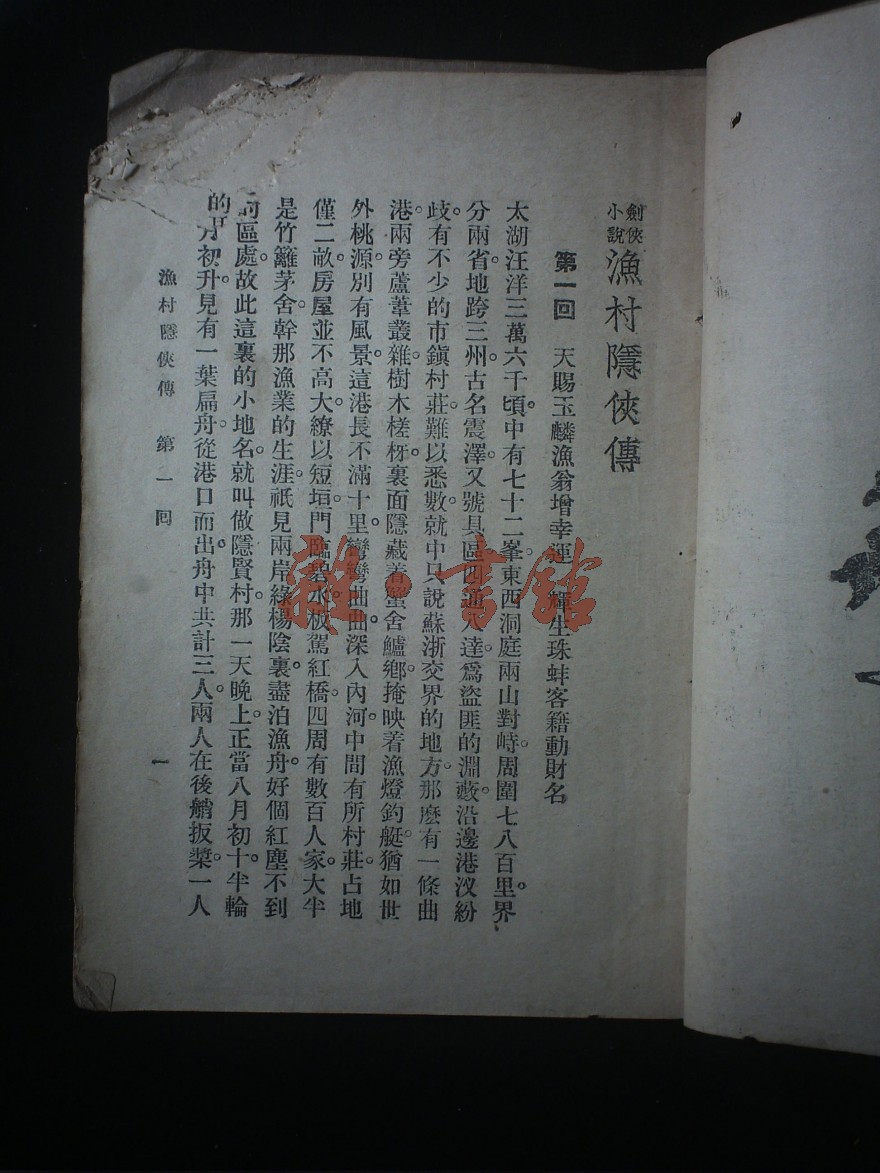 劍俠小說 漁村隱俠傳
第一回 天賜玉麟漁翁增幸運 輝生珠蚌客籍動財名
太湖汪洋三萬六千頃。中有七十二峯。東西洞庭兩山對峙。周圍七八百里。界
分兩省。地跨三州。古名震澤。又號具區。四通八達。爲盜匪的淵藪。沿邊港汊紛
歧。有不少的市鎭村莊。難以悉數。就中只說蘇浙交界的地方。那麽有一條曲
港。兩旁蘆葦叢雜。樹木槎枒。裏面隱藏着蟹舍鱸鄉。掩映着漁燈釣艇。猶如世
外桃源。別有風景。這港長不滿十里。彎彎曲曲。深入內河。中間有所村莊。占地
僅二畝。房屋並不高大。繚以短垣。門臨碧水。板駕紅橋。四周有數百人家。大半
是竹籬茅舍。幹那漁業的生涯。祇見兩岸綠楊陰裏。盡泊漁舟。好個紅塵不到
區處。故此這裏的小地名。就叫做隱賢村。那一天晚上。正當八月初十。半輪
的月初升。見有一葉扁舟。從港口而出。舟中共計三人。兩人在後艄扳槳。一人
漁村隱俠傳 第一回
一
雜·書館